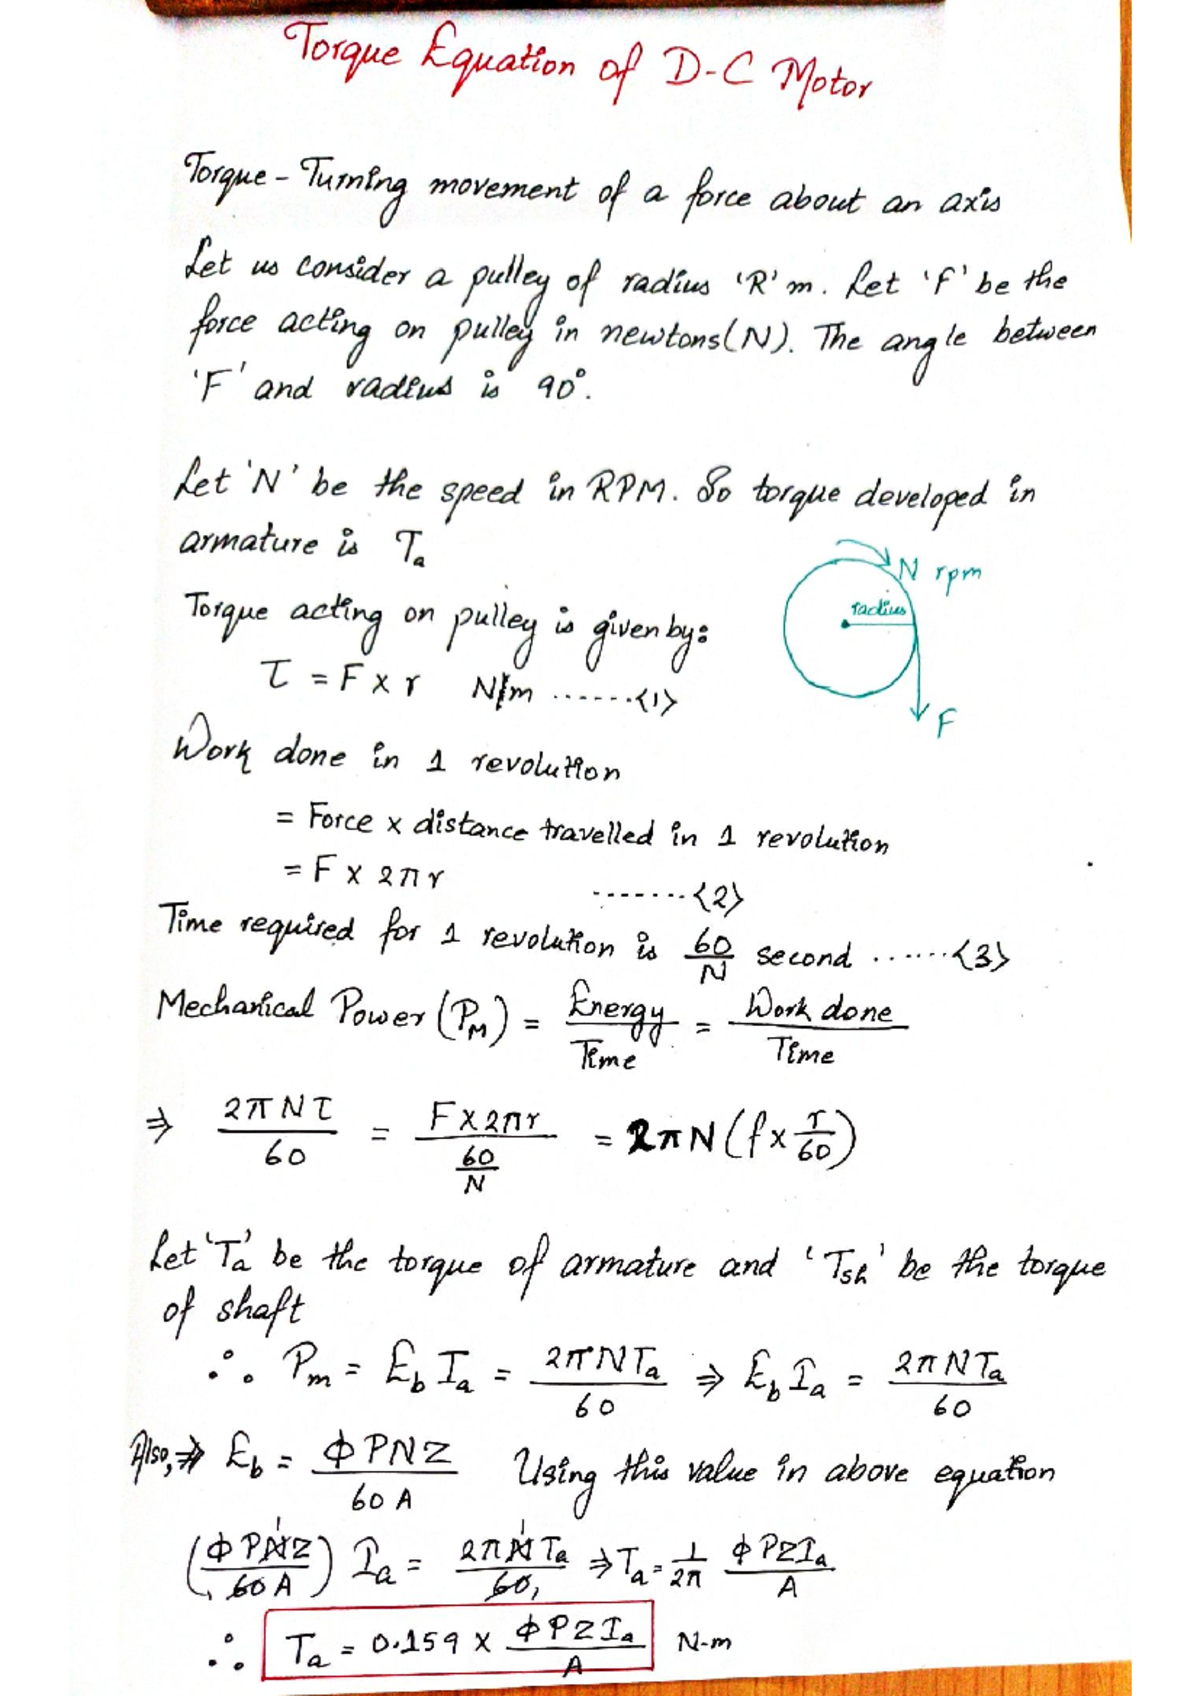 Torque Equation of D-C Motor
Torque - Turning movement of a force about an axis
Let us consider a pulley of radius 'R' m. Let 'F' be the
force acting on pulley in newtons(N). The angle between
'F' and radius is 90°.
Let 'N' be the speed in RPM. So torque developed in
armature is Ta
N rpm
radius
F
Torque acting on pulley is given by:
τ = F x r N/m .......<1>
Work done in 1 revolution
= Force x distance travelled in 1 revolution
= F x 2πr ........<2>
Time required for 1 revolution is 60/N second .......<3>
Mechanical Power (PM) = Energy/Time = Work done/Time
⇒ 2πNτ/60 = F x 2πr/(60/N) = 2πN(f x r/60)
Let 'Ta' be the torque of armature and 'Tsh' be the torque
of shaft
∴ Pm = Eb Ia = 2πNTa/60 ⇒ Eb Ia = 2πNTa/60
Also, ⇒ Eb = ΦPNZ/60A Using this value in above equation
(ΦPNZ/60A) Ia = 2πNTa/60 ⇒ Ta = 1/2π ΦPZIa/A
∴ Ta = 0.159 x ΦPZIa/A N-m